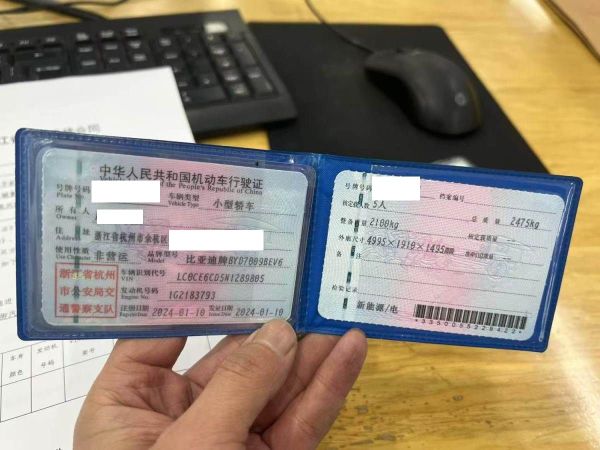 中华人民共和国机动车行驶证
of the People's Republic of China
号牌号码
Plate No.
车辆类型
Vehicle Type
小型轿车
所有人
Owner
住址
Address
浙江省杭州市余杭区
使用性质
Use Character
非营运
品牌型号
Model
比亚迪牌BYD7009BEV6
浙江省杭州
市公安局交
通警察支队
车辆识别代号
VIN
LC0CE6CD5N1289805
发动机号码
Engine No.
1G2183793
注册日期
Register Date
2024-01-10
发证日期
Issue Date
2024-01-10
号牌号码
档案编号
核定载人数
5人
总质量
2475kg
整备质量
2100kg
核定载质量
外廓尺寸
4995×1910×1495mm
准牵引总质量
备注
检验记录
新能源/电
车身
颜色
发动机
号码